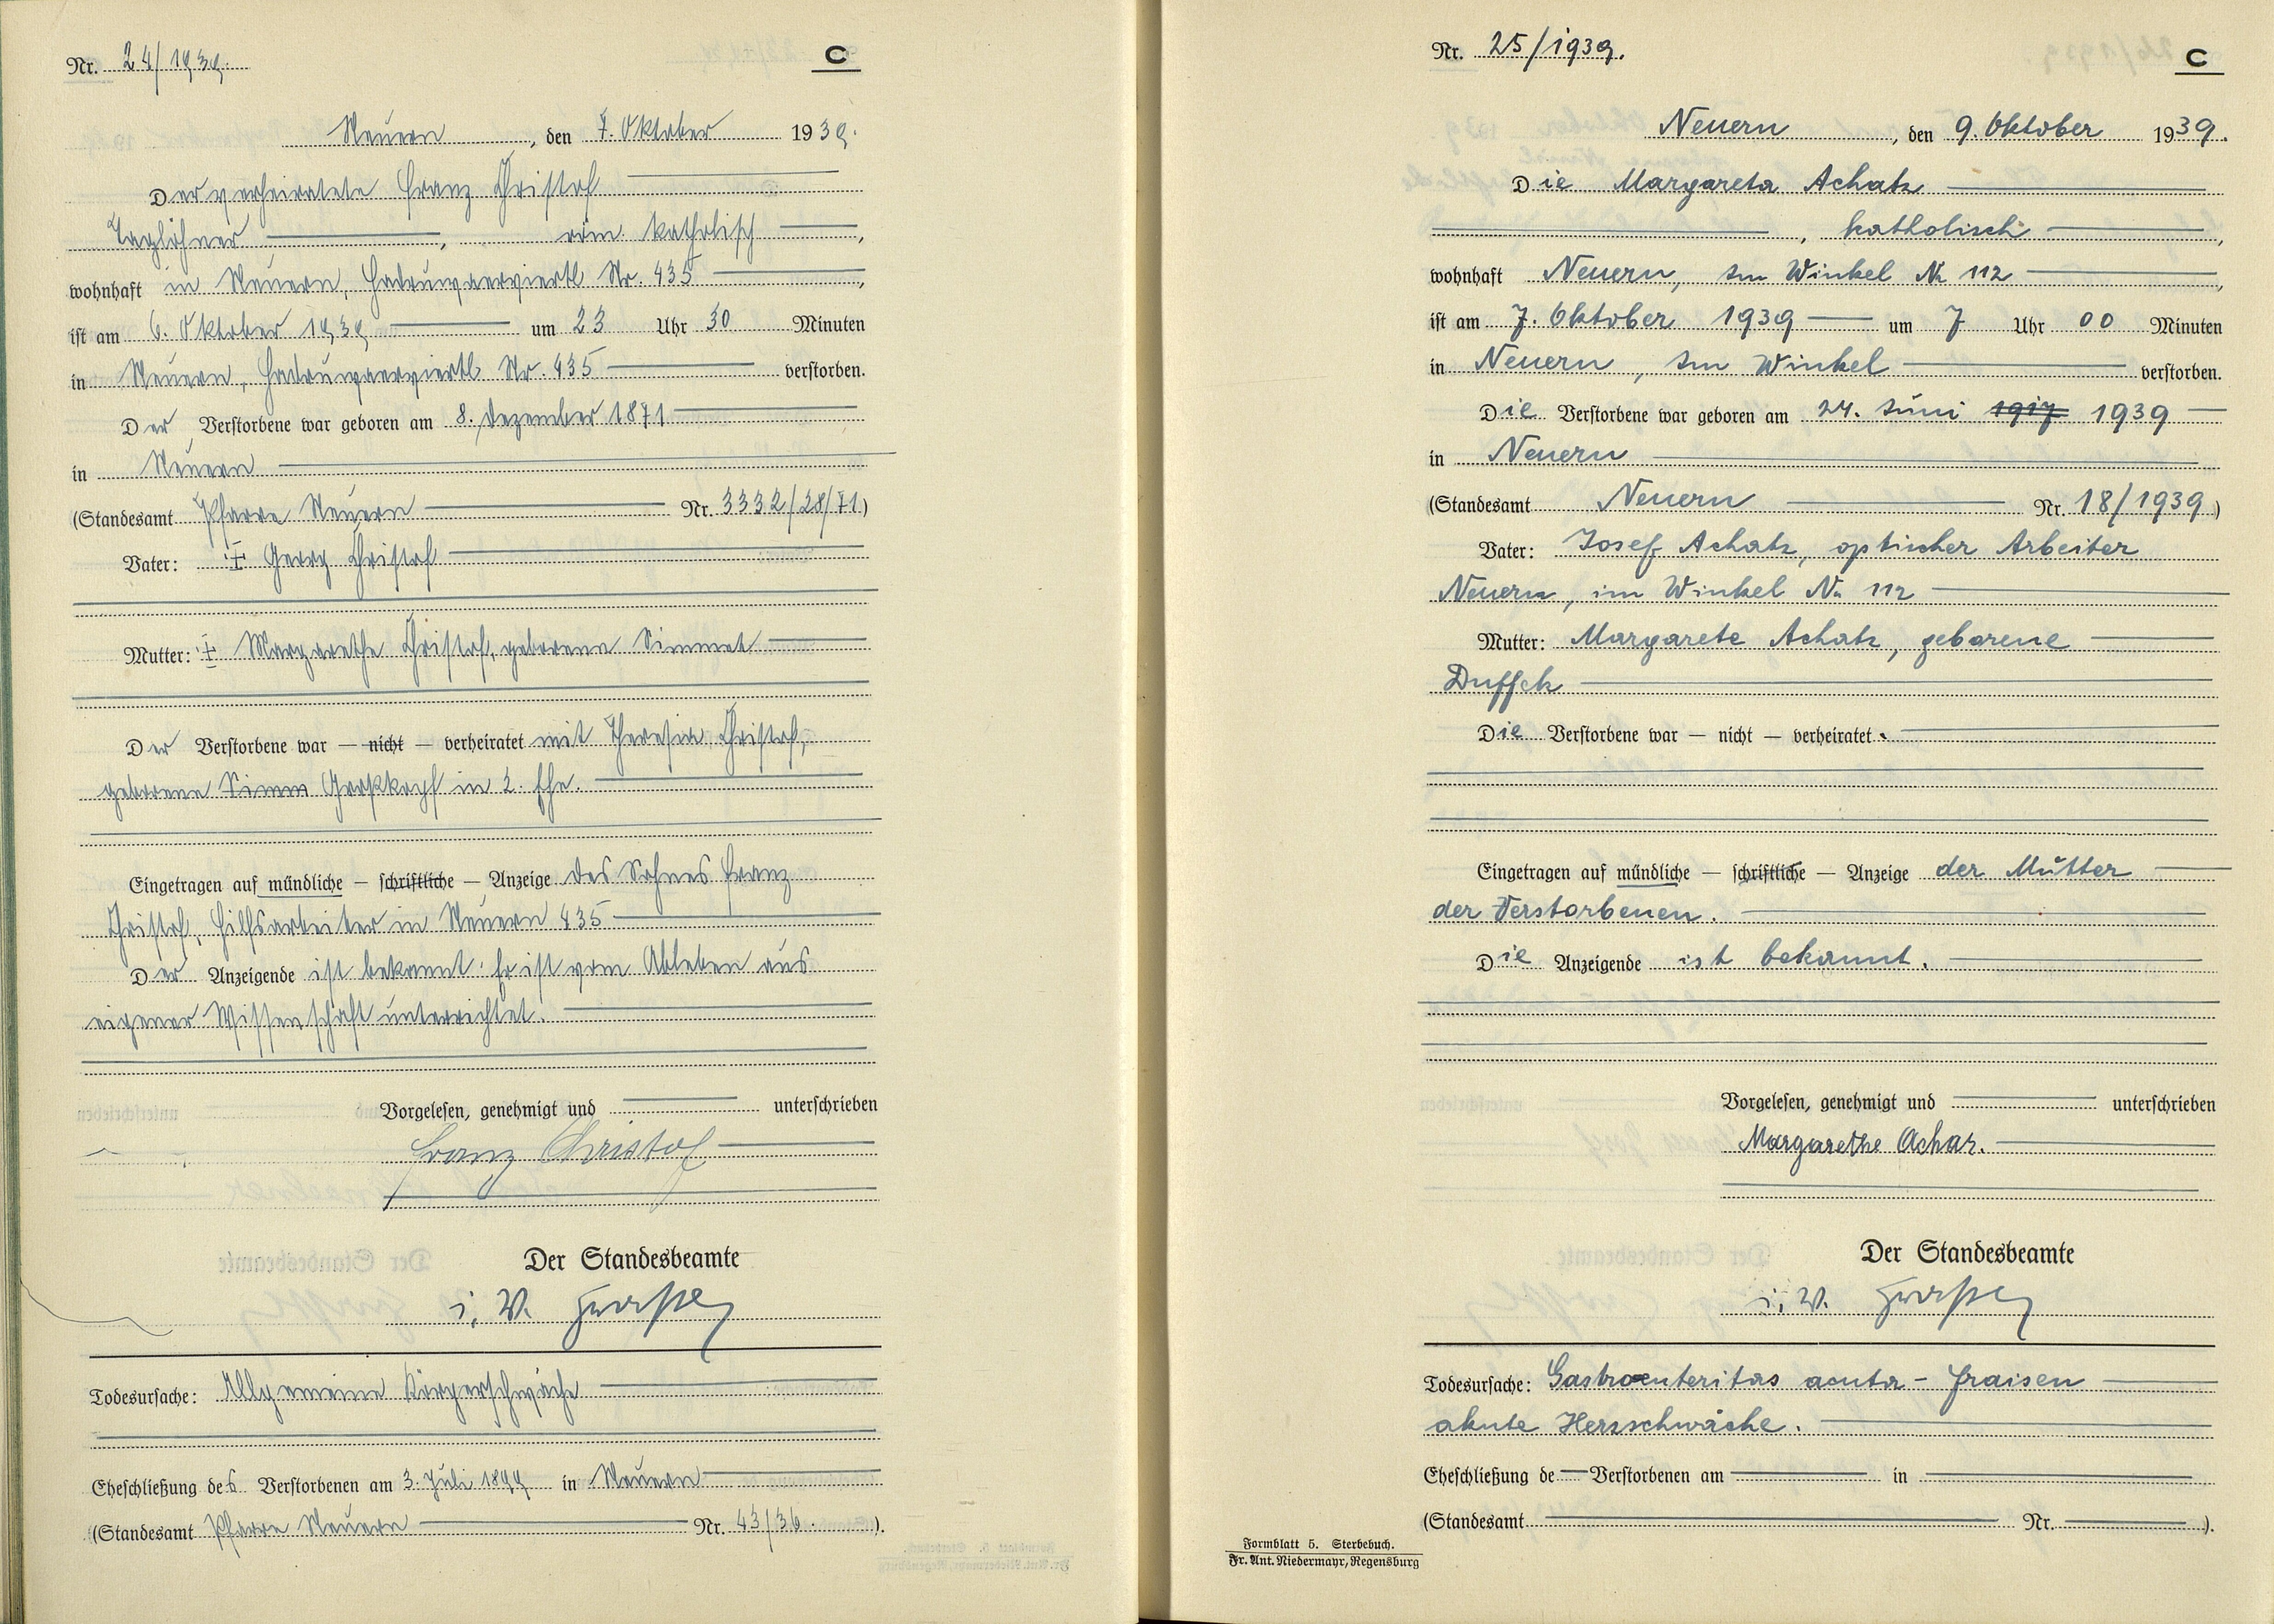 Nr. 24/1939.
C
Neuern, den 7. Oktober 1939.
Der verheiratete Franz Christof
Taglöhner, röm. katholisch,
wohnhaft in Neuern, Nr. 435,
ist am 6. Oktober 1939 um 23 Uhr 30 Minuten
in Neuern, Nr. 435 verstorben.
Der Verstorbene war geboren am 8. Dezember 1871
in Neuern
(Standesamt Pfarre Neuern Nr. 3332/28/71)
Vater: ‡ Georg Christof
Mutter: ‡ Margarethe Christof, geborene Simmet
Der Verstorbene war — nicht — verheiratet mit Theresia Christof,
geborene Simm Großkopf in 2. Ehe.
Eingetragen auf mündliche — schriftliche — Anzeige des Sohnes Franz
Christof, Hilfsarbeiter in Neuern 435
Der Anzeigende ist bekannt. Er ist vom Ableben aus
eigener Wissenschaft unterrichtet.
Vorgelesen, genehmigt und unterschrieben
Franz Christof
Der Standesbeamte
i. V.
Todesursache: Allgemeine Körperschwäche
Eheschließung des Verstorbenen am 3. Juli 1899 in Neuern
(Standesamt Pfarre Neuern Nr. 43/36.).
Nr. 25/1939.
C
Neuern, den 9. Oktober 1939.
Die Margareta Achatz
, katholisch,
wohnhaft Neuern, Im Winkel No 112,
ist am 7. Oktober 1939 um 7 Uhr 00 Minuten
in Neuern, Im Winkel verstorben.
Die Verstorbene war geboren am 24. Juni 1917 1939
in Neuern
(Standesamt Neuern Nr. 18/1939)
Vater: Josef Achatz, optischer Arbeiter
Neuern, im Winkel No 112
Mutter: Margarete Achatz, geborene
Duffek
Die Verstorbene war — nicht — verheiratet.
Eingetragen auf mündliche — schriftliche — Anzeige der Mutter
der Verstorbenen.
Die Anzeigende ist bekannt.
Vorgelesen, genehmigt und unterschrieben
Margarethe Achaz.
Der Standesbeamte
i. V.
Todesursache: Gastroenteritas acuta - Fraisen
akute Herzschwäche.
Eheschließung de Verstorbenen am in
(Standesamt Nr. ).
Formblatt 5. Sterbebuch.
Fr. Ant. Niedermayr, Regensburg